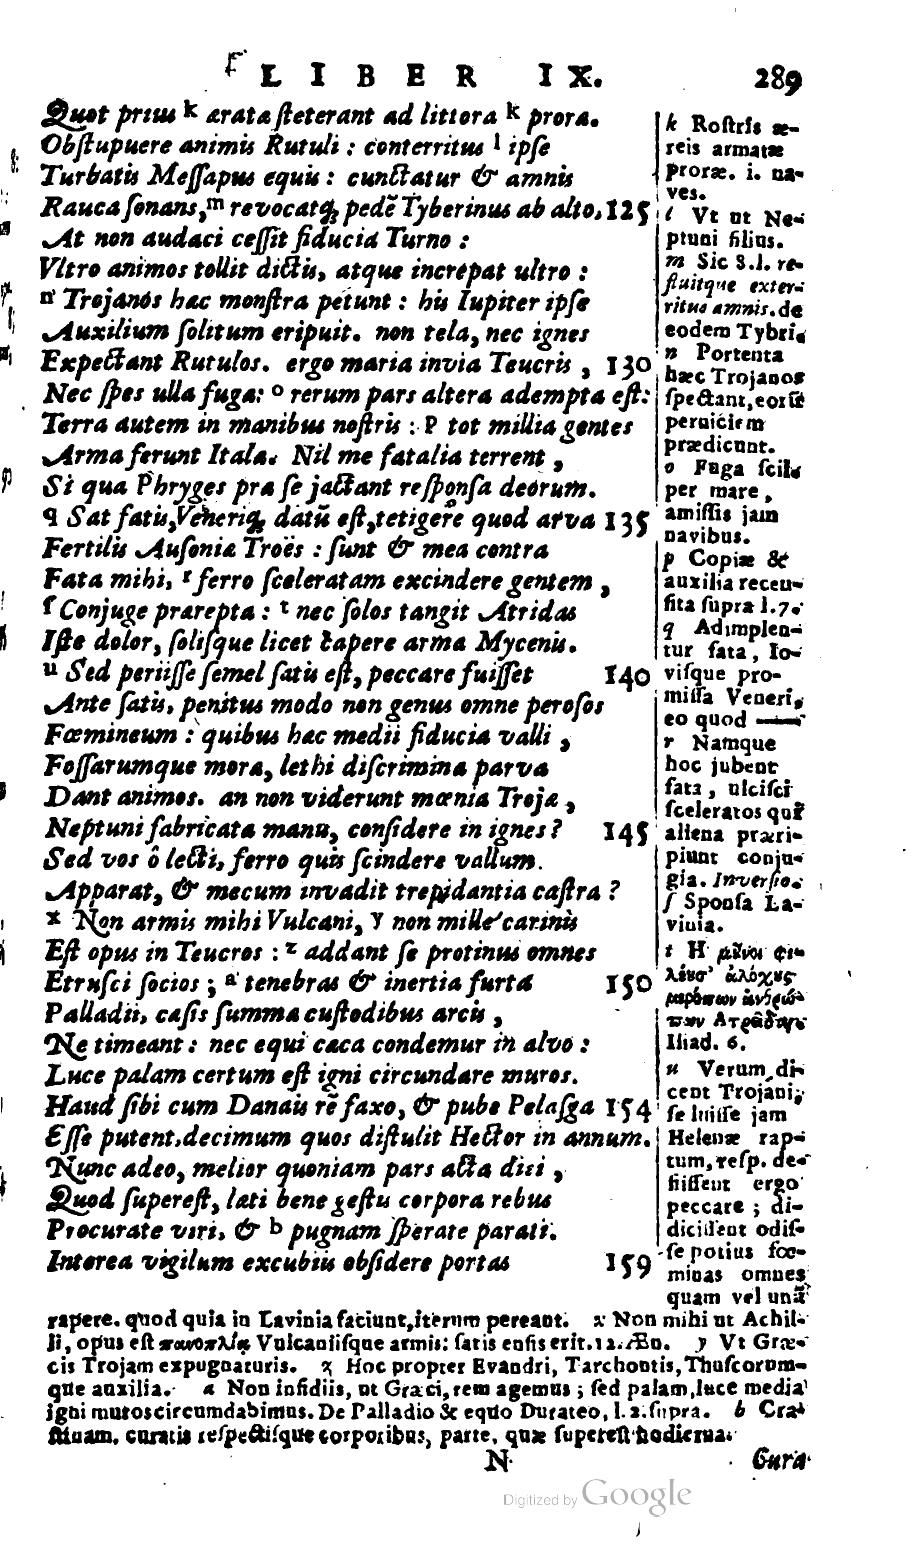 LIBER IX. 289
Quot prius k æratæ ſteterant ad littora k proræ.
Obſtupuere animis Rutuli : conterritus l ipſe
Turbatis Meſſapus equis : cunctatur & amnis
Rauca ſonans, m revocatq; pedē Tyberinus ab alto. 125
At non audaci ceſſit fiducia Turno :
Vltro animos tollit dictis, atque increpat ultro :
n Trojanos hæc monſtra petunt : his Iupiter ipſe
Auxilium ſolitum eripuit. non tela, nec ignes
Expectant Rutulos. ergo maria invia Teucris , 130
Nec ſpes ulla fugæ: o rerum pars altera adempta eſt:
Terra autem in manibus noſtris : p tot millia gentes
Arma ferunt Italæ. Nil me fatalia terrent ,
Si qua Phryges præ ſe jactant reſponſa deorum.
q Sat fatis, Veneriq; datū eſt, tetigere quod arva 135
Fertilis Auſoniæ Troës : ſunt & mea contra
Fata mihi, r ferro ſceleratam excindere gentem ,
ſ Conjuge prærepta : t nec ſolos tangit Atridas
Iſte dolor, ſoliſque licet capere arma Mycenis.
u Sed periiſſe ſemel ſatis eſt, peccare fuiſſet 140
Ante ſatis, penitus modo non genus omne peroſos
Fœmineum : quibus hæc medii fiducia valli ,
Foſſarumque moræ, lethi diſcrimina parva
Dant animos. an non viderunt mœnia Trojæ ,
Neptuni fabricata manu, conſidere in ignes? 145
Sed vos ô lecti, ferro quis ſcindere vallum.
Apparat, & mecum invadit trepidantia caſtra ?
x Non armis mihi Vulcani, y non mille carinis
Eſt opus in Teucros : z addant ſe protinus omnes
Etruſci ſocios ; a tenebras & inertia furta 150
Palladii, cæſis ſummæ cuſtodibus arcis ,
Ne timeant : nec equi cæca condemur in alvo :
Luce palam certum eſt igni circundare muros.
Haud ſibi cum Danais rē faxo, & pube Pelaſga 154
Eſſe putent, decimum quos diſtulit Hector in annum.
Nunc adeo, melior quoniam pars acta diei ,
Quod ſupereſt, læti bene geſtis corpora rebus
Procurate viri, & b pugnam ſperate parati.
Interea vigilum excubiis obſidere portas 159
k Roſtris æ-
reis armatæ
proræ. i. na-
ves.
l Vt ut Ne-
ptuni filius.
m Sic 8.l. re-
fluitque exter-
ritus amnis. de
eodem Tybri.
n Portenta
hæc Trojanos
ſpectant, eorū
perniciem
prædicunt.
o Fuga ſcil.
per mare,
amiſſis jam
navibus.
p Copiæ &
auxilia recen-
ſita ſupra l.7.
q Adimplen-
tur fata, Io-
viſque pro-
miſſa Veneri,
eo quod
r Namque
hoc jubent
fata, ulciſci
ſceleratos qui
aliena præri-
piunt conju-
gia. Inverſio.
ſ Sponſa La-
vinia.
t Η μῦνοι φι-
λέυσ' ἀλόχυς
μερόπων ἀνθρώ-
πων Ατρεῖδαι
Iliad. 6.
u Verum, di-
cent Trojani,
ſe luiſſe jam
Helenæ rap-
tum, reſp. de-
fiiſſent ergo
peccare ; di-
diciſſent odiſ-
ſe potius fœ-
minas omnes
quam vel unā
rapere. quod quia in Lavinia faciunt, iterum pereant. x Non mihi ut Achil-
li, opus eſt πανοπλίᾳ Vulcaniiſque armis: ſatis enſis erit. 12. Æn. y Vt Græ-
cis Trojam expugnaturis. z Hoc propter Evandri, Tarchontis, Thuſcorum-
que auxilia. a Non inſidiis, ut Græci, rem agemus ; ſed palam, luce media
igni muros circumdabimus. De Palladio & equo Durateo, l.2. ſupra. b Cra-
ſtinam. curatis reſpectiſque corporibus, parte, quæ ſupereſt hodierna.
N Cura
Digitized by Google